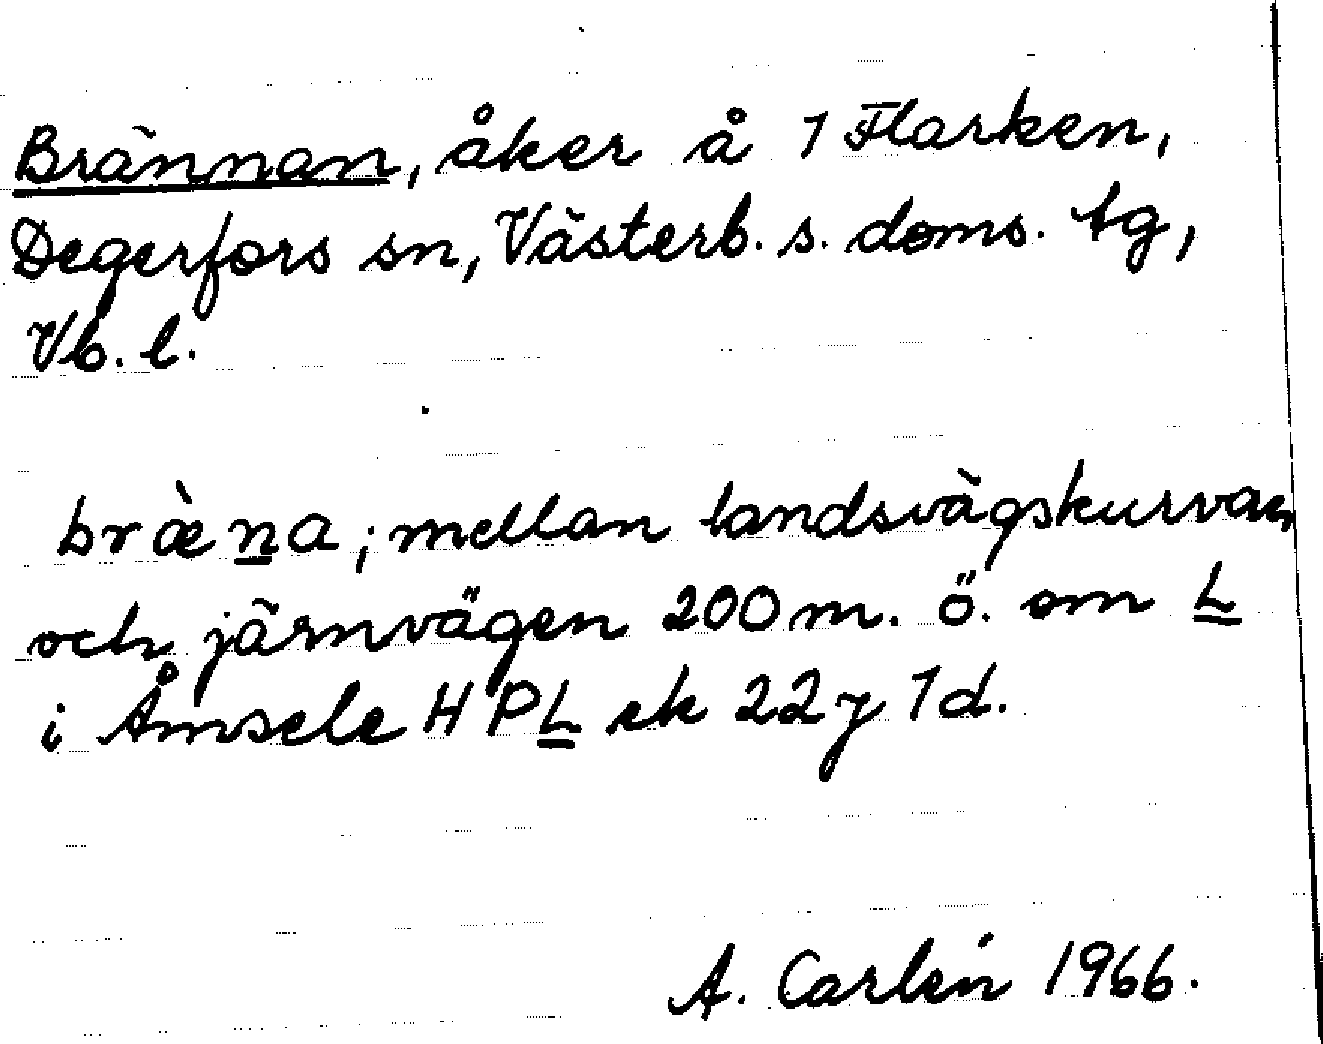 Brännan, åker å 1 Flarken,
Degerfors sn, Västerb. s. doms. tg,
Vb. l.
bræ̀na; mellan landsvägskurvan
och järnvägen 200 m. ö. om L
i Åmsele HPL ek 22 y 1 d.
A. Carlén 1966.